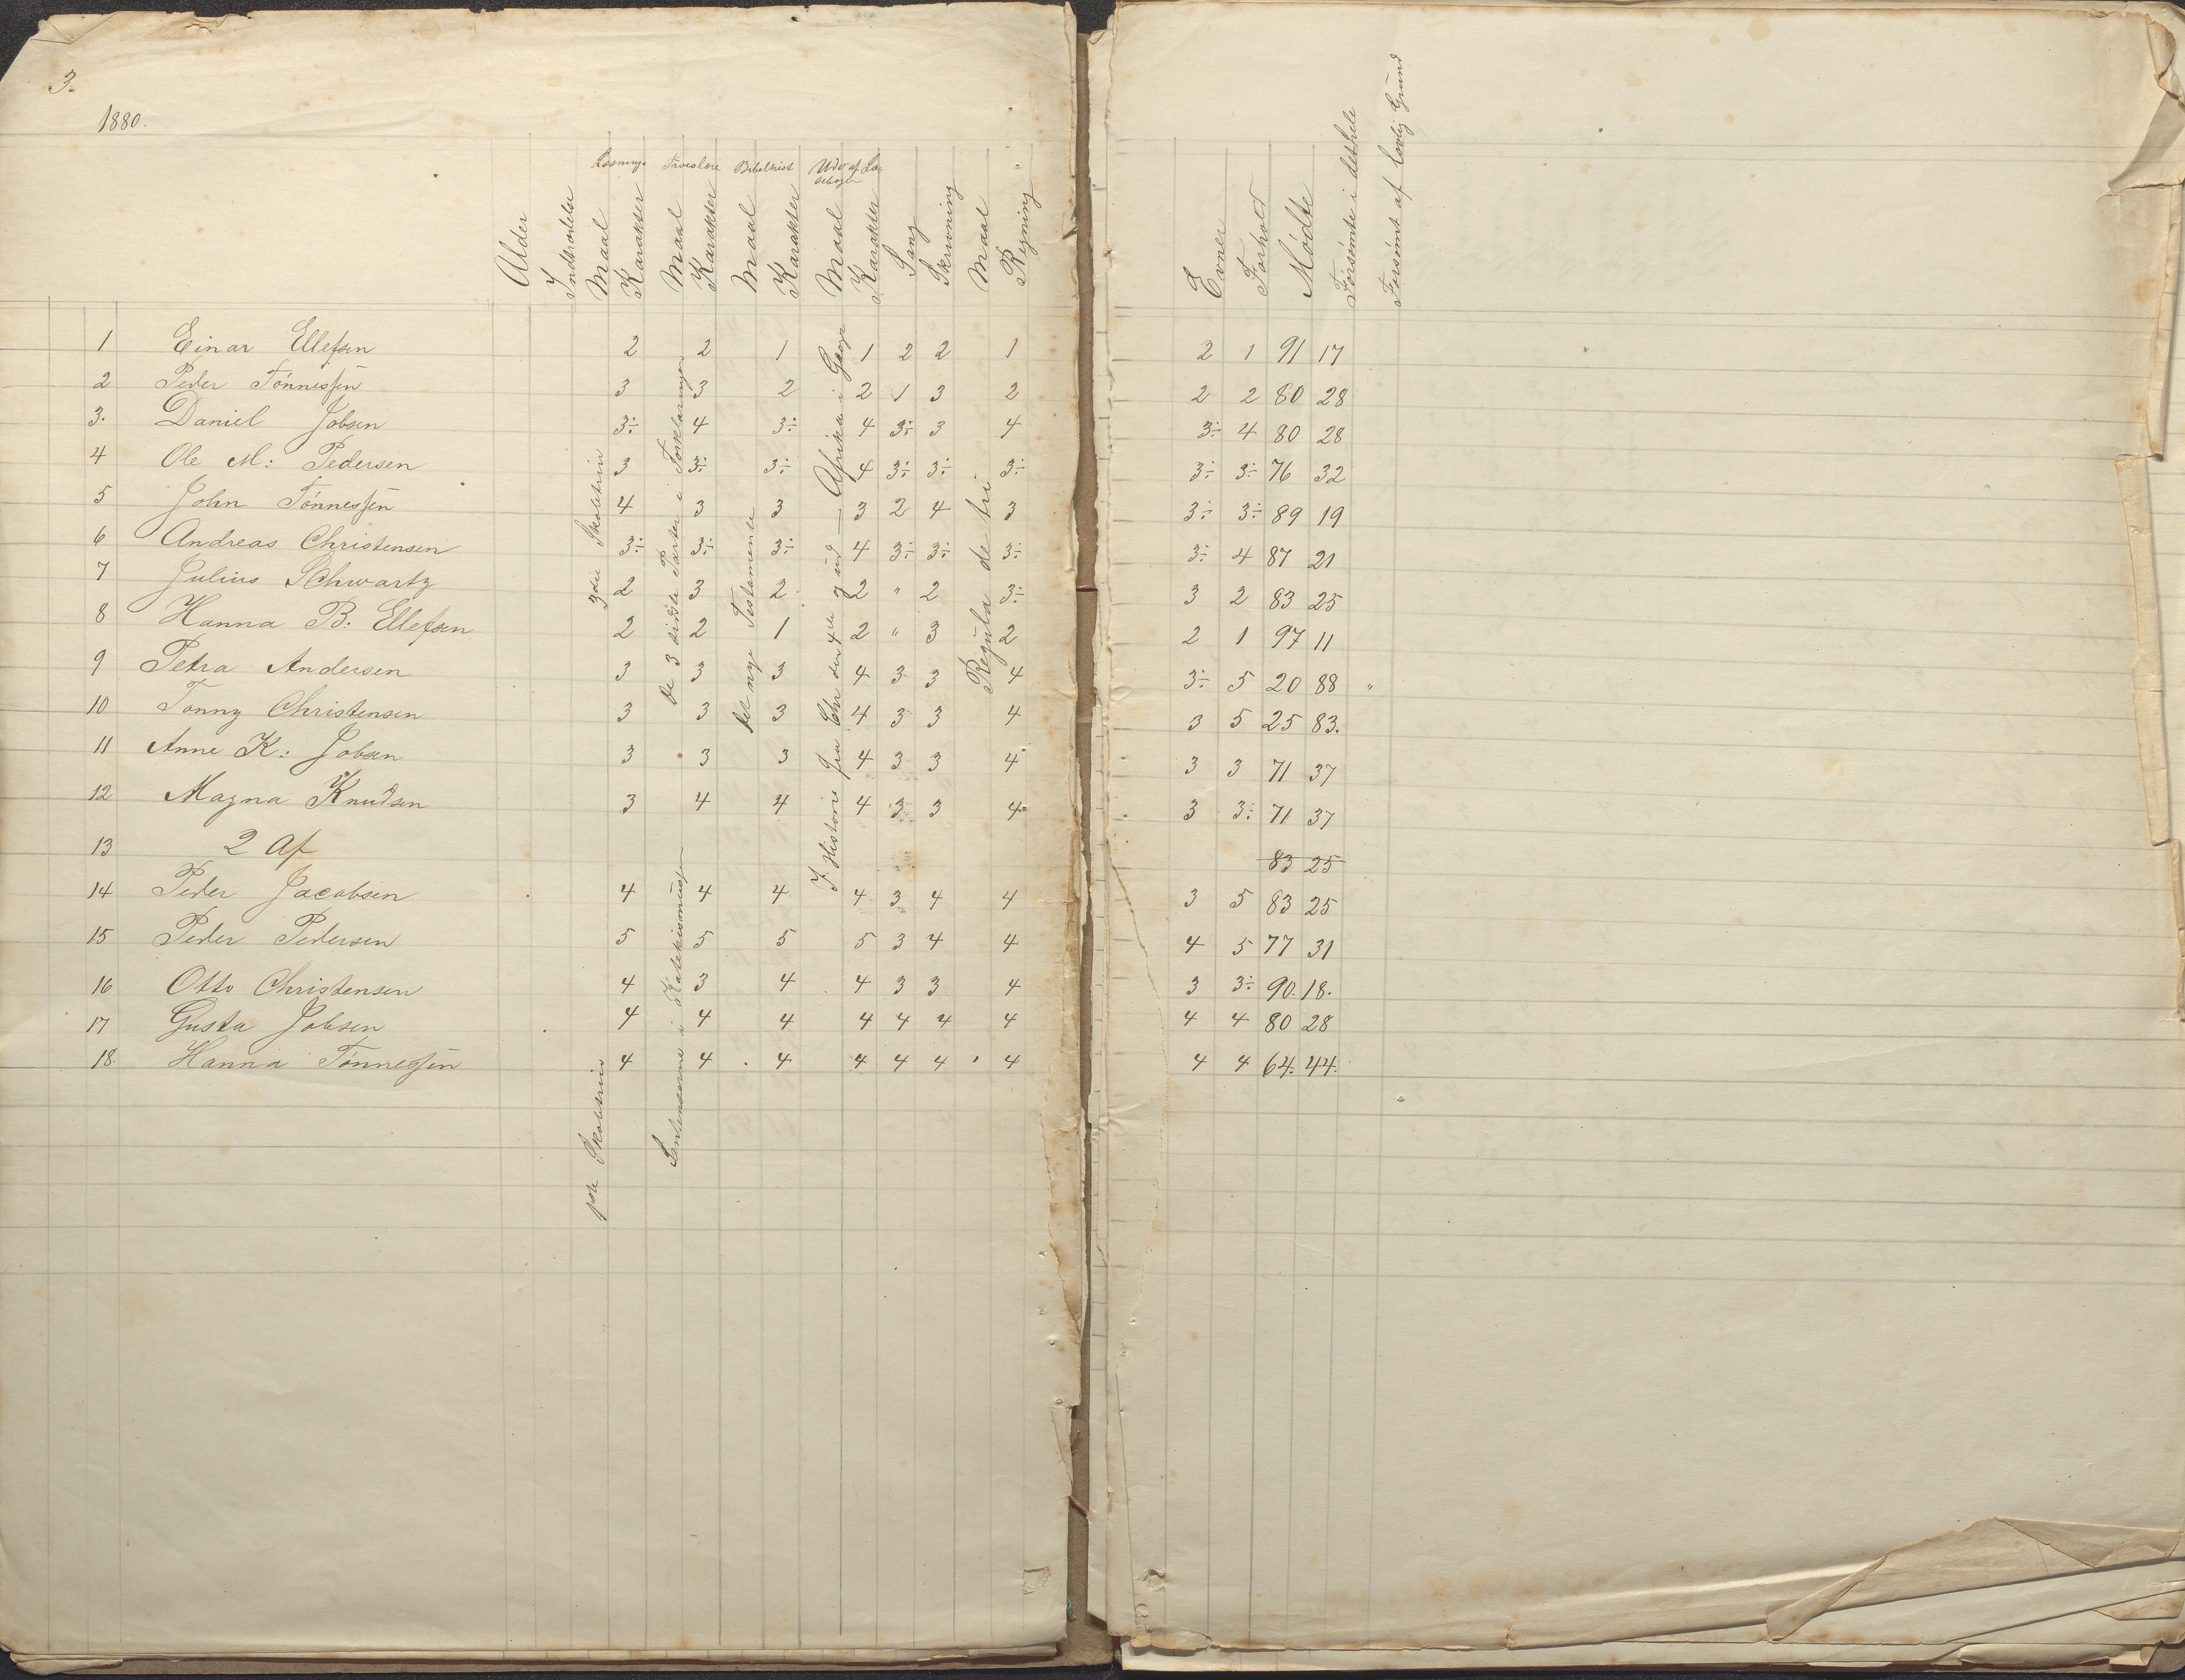 3.
1880.
Læsning Troeslære Bibelhist Udv af Læsebogen
Alder Indtrædelse Maal Karakter Maal Karakter Maal Karakter Maal Karakter Sang Skrivning Maal Regning Evner Forhold Mødte Forsømte i det hele Forsømt af lovlig Grund
1 Einar Ellefsen 2 2 1 1 2 2 1 2 1 91 17
2 Peder Tønnesen 3 3 2 2 1 3 2 2 2 80 28
3. Daniel Jobsen 3÷ 4 3÷ 4 3÷ 3 4 3÷ 4 80 28
4 Ole M: Pedersen 3 3÷ 3÷ 4 3÷ 3÷ 3÷ 3÷ 3÷ 76 32
5 John Tønnesen 4 3 3 3 2 4 3 3÷ 3÷ 89 19
6 Andreas Christensen 3÷ 3÷ 3÷ 4 3÷ 3÷ 3÷ 3÷ 4 87 21
7 Julius Schwartz 2 3 2 2 " 2 3÷ 3 2 83 25
8 Hanna B: Ellefsen 2 2 1 2 " 3 2 2 1 97 11
9 Petra Andersen 3 3 3 4 3 3 4 3÷ 5 20 88 "
10 Tonny Christensen 3 3 3 4 3 3 4 3 5 25 83.
11 Anne K: Jobsen 3 3 3 4 3 3 4 3 3 71 37
12 Magna Knudsen 3 4 4 4 3 3 4 3 3÷ 71 37
13 2 Af 83 25
14 Peder Jacobsen 4 4 4 4 3 4 4 3 5 83 25
15 Peder Pedersen 5 5 5 5 3 4 4 4 5 77 31
16 Otto Christensen 4 3 4 4 3 3 4 3 3÷ 90. 18.
17 Gusta Jobsen 4 4 4 4 4 4 4 4 4 80 28
18. Hanna Tønnesen 4 4 4 4 4 4 4 4 4 64. 44.
3die Skoletrin
De 3 sidste Parter i Forklaringen
Det nye Testamente
I Historie fra Chr den 4de og ud — Afrika i Geogr
Regula de tri
1ste Skoletrin
Sentenserne i Katekismus